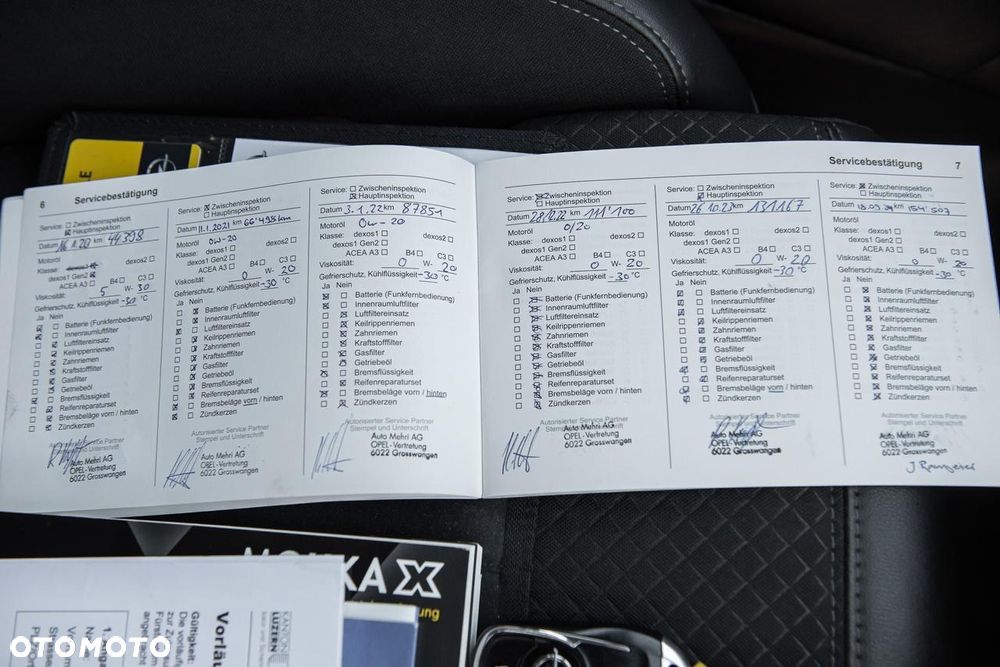 6 Servicebestätigung
Service: Zwischeninspektion
Hauptinspektion
Datum 16.1.20 km 44398
Motoröl
Klasse: dexos1 dexos2
dexos1 Gen2
ACEA A3 B4 C3
Viskosität: 5 W- 30
Gefrierschutz, Kühlflüssigkeit -30 °C
Ja Nein
Batterie (Funkfernbedienung)
Innenraumluftfilter
Luftfiltereinsatz
Keilrippenriemen
Zahnriemen
Kraftstofffilter
Gasfilter
Getriebeöl
Bremsflüssigkeit
Reifenreparaturset
Bremsbeläge vorn / hinten
Zündkerzen
Autorisierter Service Partner
Stempel und Unterschrift
Auto Mehri AG
OPEL-Vertretung
6022 Grosswangen
Service: Zwischeninspektion
Hauptinspektion
Datum 11.1.2021 km 66'498km
Motoröl 0W-20
Klasse: dexos1 dexos2
dexos1 Gen2
ACEA A3 B4 C3
Viskosität: 0 W- 20
Gefrierschutz, Kühlflüssigkeit -30 °C
Ja Nein
Batterie (Funkfernbedienung)
Innenraumluftfilter
Luftfiltereinsatz
Keilrippenriemen
Zahnriemen
Kraftstofffilter
Gasfilter
Getriebeöl
Bremsflüssigkeit
Reifenreparaturset
Bremsbeläge vorn / hinten
Zündkerzen
Autorisierter Service Partner
Stempel und Unterschrift
Auto Mehri AG
OPEL-Vertretung
6022 Grosswangen
Service: Zwischeninspektion
Hauptinspektion
Datum 3.1.22 km 87851
Motoröl 0W-20
Klasse: dexos1 dexos2
dexos1 Gen2
ACEA A3 B4 C3
Viskosität: 0 W- 20
Gefrierschutz, Kühlflüssigkeit -30 °C
Ja Nein
Batterie (Funkfernbedienung)
Innenraumluftfilter
Luftfiltereinsatz
Keilrippenriemen
Zahnriemen
Kraftstofffilter
Gasfilter
Getriebeöl
Bremsflüssigkeit
Reifenreparaturset
Bremsbeläge vorn / hinten
Zündkerzen
Autorisierter Service Partner
Stempel und Unterschrift
Auto Mehri AG
OPEL-Vertretung
6022 Grosswangen
Servicebestätigung 7
Service: Zwischeninspektion
Hauptinspektion
Datum 28.12.22 km 111'100
Motoröl 0/20
Klasse: dexos1 dexos2
dexos1 Gen2
ACEA A3 B4 C3
Viskosität: 0 W- 20
Gefrierschutz, Kühlflüssigkeit -30 °C
Ja Nein
Batterie (Funkfernbedienung)
Innenraumluftfilter
Luftfiltereinsatz
Keilrippenriemen
Zahnriemen
Kraftstofffilter
Gasfilter
Getriebeöl
Bremsflüssigkeit
Reifenreparaturset
Bremsbeläge vorn / hinten
Zündkerzen
Autorisierter Service Partner
Stempel und Unterschrift
Auto Mehri AG
OPEL-Vertretung
6022 Grosswangen
Service: Zwischeninspektion
Hauptinspektion
Datum 26.10.23 km 131167
Motoröl
Klasse: dexos1 dexos2
dexos1 Gen2
ACEA A3 B4 C3
Viskosität: 0 W- 20
Gefrierschutz, Kühlflüssigkeit -30 °C
Ja Nein
Batterie (Funkfernbedienung)
Innenraumluftfilter
Luftfiltereinsatz
Keilrippenriemen
Zahnriemen
Kraftstofffilter
Gasfilter
Getriebeöl
Bremsflüssigkeit
Reifenreparaturset
Bremsbeläge vorn / hinten
Zündkerzen
Autorisierter Service Partner
Stempel und Unterschrift
Auto Mehri AG
OPEL-Vertretung
6022 Grosswangen
Service: Zwischeninspektion
Hauptinspektion
Datum 18.09.24 km 154'507
Motoröl
Klasse: dexos1 dexos2
dexos1 Gen2
ACEA A3 B4 C3
Viskosität: 0 W- 20
Gefrierschutz, Kühlflüssigkeit -30 °C
Ja Nein
Batterie (Funkfernbedienung)
Innenraumluftfilter
Luftfiltereinsatz
Keilrippenriemen
Zahnriemen
Kraftstofffilter
Gasfilter
Getriebeöl
Bremsflüssigkeit
Reifenreparaturset
Bremsbeläge vorn / hinten
Zündkerzen
Autorisierter Service Partner
Stempel und Unterschrift
Auto Mehri AG
OPEL-Vertretung
6022 Grosswangen
MOKKA X
KANTON
LUZERN
Gültigkeit:
OTOMOTO